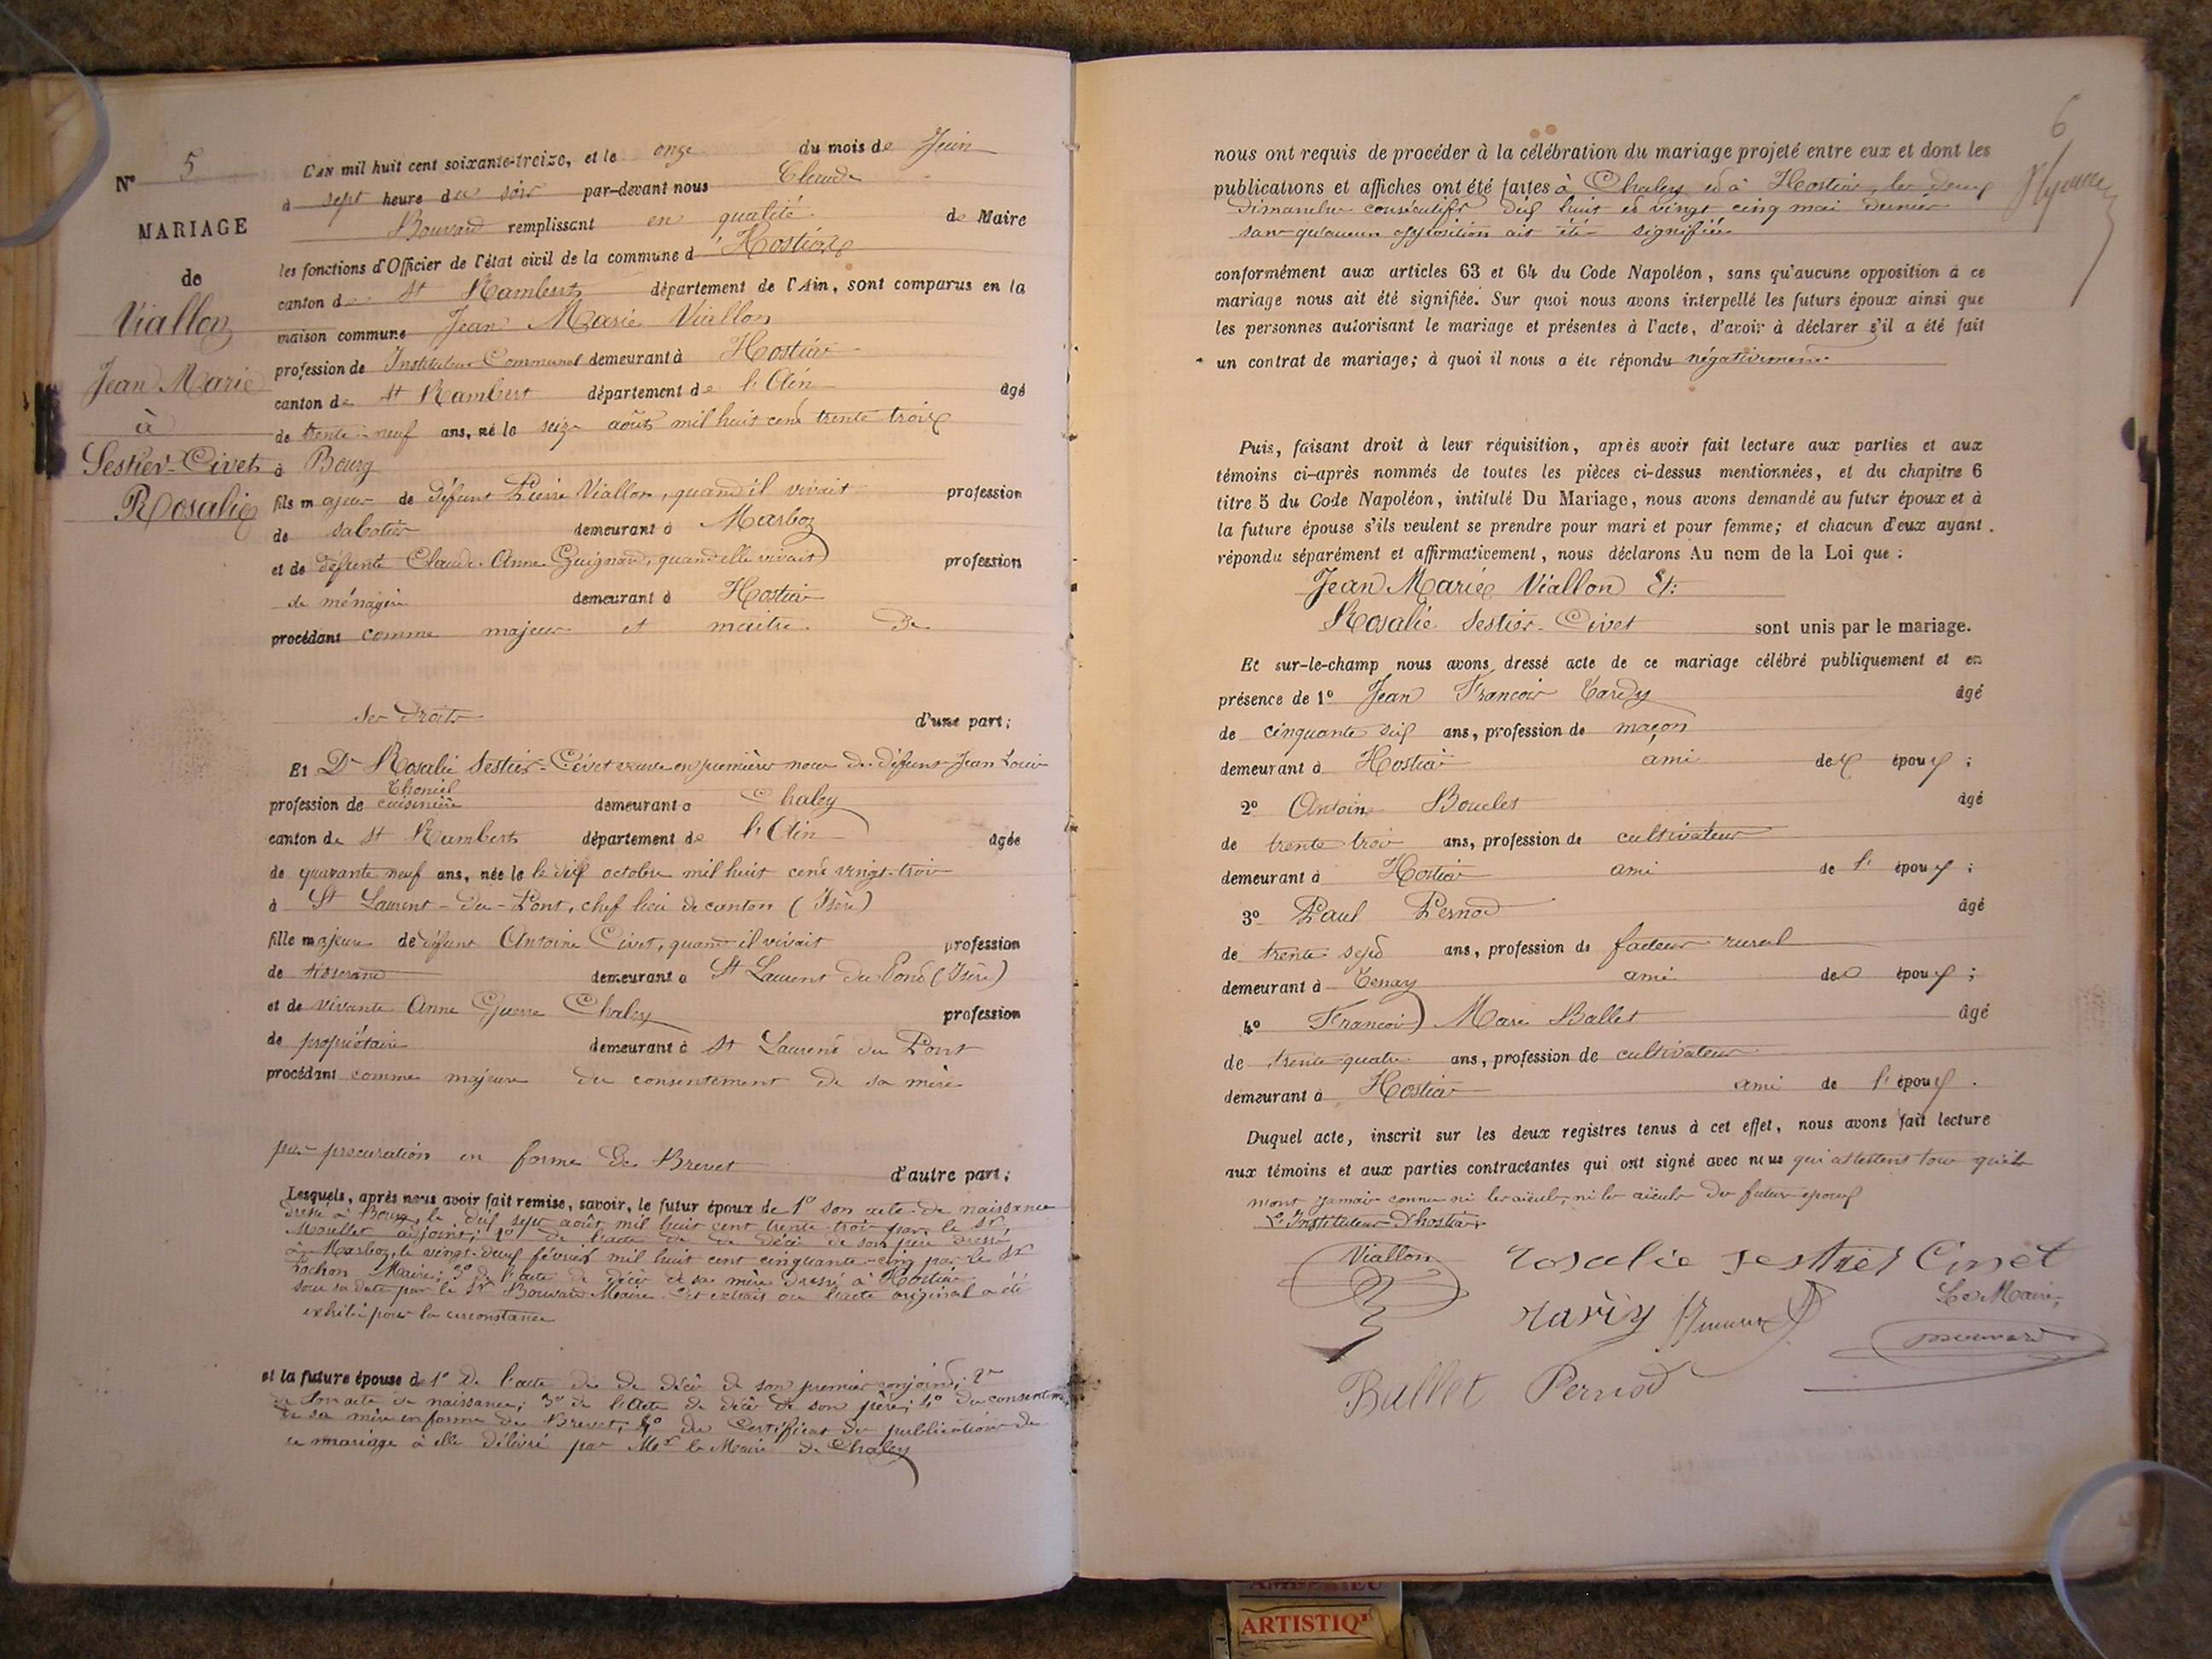 N° 5
MARIAGE
de
Viallon
Jean Marie
à
Sestier-Civet
Rosalie
L'AN mil huit cent soixante-treize, et le onze du mois de Juin
à sept heure du soir par-devant nous Claude
Bouvard remplissant en qualité de Maire
les fonctions d'Officier de l'état civil de la commune d'Hostiaz
canton de St Rambert département de l'Ain, sont comparus en la
maison commune Jean Marie Viallon
profession de Instituteur Communal demeurant à Hostiaz
canton de St Rambert département de l'Ain âgé
de trente-neuf ans, né le seize août mil huit cent trente trois
à Bourg
fils majeur de défunt Pierre Viallon, quand il vivait profession
de sabotier demeurant à Marboz
et de défunte Claude Anne Guignard, quand elle vivait profession
de ménagère demeurant à Hostiaz
procédant comme majeur et maître de
ses droits d'une part;
Et De Rosalie Sestier-Civet veuve en premières noces de défunt Jean Louis
Thoniel
profession de cuisinière demeurant à Chaley
canton de St Rambert département de l'Ain âgée
de quarante neuf ans, née le le dix octobre mil huit cent vingt-trois
à St Laurent-du-Pont, chef lieu de canton (Isère)
fille majeure de défunt Antoine Civet, quand il vivait profession
de tisserand demeurant à St Laurent du Pont (Isère)
et de vivante Anne Guerre Chaley profession
de propriétaire demeurant à St Laurent du Pont
procédant comme majeure du consentement de sa mère
par procuration en forme de Brevet d'autre part;
Lesquels, après nous avoir fait remise, savoir, le futur époux de 1° son acte de naissance
dressé à Bourg, le dix sept août mil huit cent trente-trois par le Sr
Moullet adjoint; 2° de l'acte de de décès de son père dressé
à Marboz, le vingt-deux février mil huit cent cinquante-cinq par le Sr
Rochon Maire; 3° de l'acte de décès de sa mère dressé à Hostiaz
sous sa date par le Sr Bouvard Maire. Cet extrait ou l'acte original a été
exhibé pour la circonstance
et la future épouse de 1° de l'acte de de décès de son premier conjoint; 2°
de son acte de naissance; 3° de l'acte de décès de son père; 4° du consentement
de sa mère en forme de Brevet; 5° du Certificat de publication de
ce mariage à elle délivré par Mr le Maire de Chaley
6
nous ont requis de procéder à la célébration du mariage projeté entre eux et dont les
publications et affiches ont été faites à Chaley et à Hostiaz, les deux
dimanches consécutifs dix huit et vingt cinq mai dernier
sans qu'aucun opposition ait été signifiée
conformément aux articles 63 et 64 du Code Napoléon, sans qu'aucune opposition à ce
mariage nous ait été signifiée. Sur quoi nous avons interpellé les futurs époux ainsi que
les personnes autorisant le mariage et présentes à l'acte, d'avoir à déclarer s'il a été fait
un contrat de mariage; à quoi il nous a été répondu négativement
Puis, faisant droit à leur réquisition, après avoir fait lecture aux parties et aux
témoins ci-après nommés de toutes les pièces ci-dessus mentionnées, et du chapitre 6
titre 5 du Code Napoléon, intitulé Du Mariage, nous avons demandé au futur époux et à
la future épouse s'ils veulent se prendre pour mari et pour femme; et chacun d'eux ayant
répondu séparément et affirmativement, nous déclarons Au nom de la Loi que :
Jean Marie Viallon Et:
Rosalie Sestier-Civet sont unis par le mariage.
Et sur-le-champ nous avons dressé acte de ce mariage célébré publiquement et en
présence de 1° Jean François Tardy âgé
de cinquante six ans, profession de maçon
demeurant à Hostiaz ami des époux;
2° Antoine Boucles âgé
de trente trois ans, profession de cultivateur
demeurant à Hostiaz ami de l'époux;
3° Paul Pernod âgé
de trente sept ans, profession de facteur rural
demeurant à Tenay ami des époux;
4° François Marc Ballet âgé
de trente-quatre ans, profession de cultivateur
demeurant à Hostiaz ami de l'époux.
Duquel acte, inscrit sur les deux registres tenus à cet effet, nous avons fait lecture
aux témoins et aux parties contractantes qui ont signé avec nous qui attestent tous qu'ils
n'ont jamais connu ni les aïeuls, ni les aïeules du futur époux
L'Instituteur d'hostiaz
Viallon rosalie sestier Civet
Tardy
Le Maire,
Bouvard
Ballet Pernod
ARTISTIQ